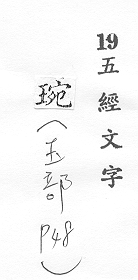 19五經文字
琬
(玉部
P48)